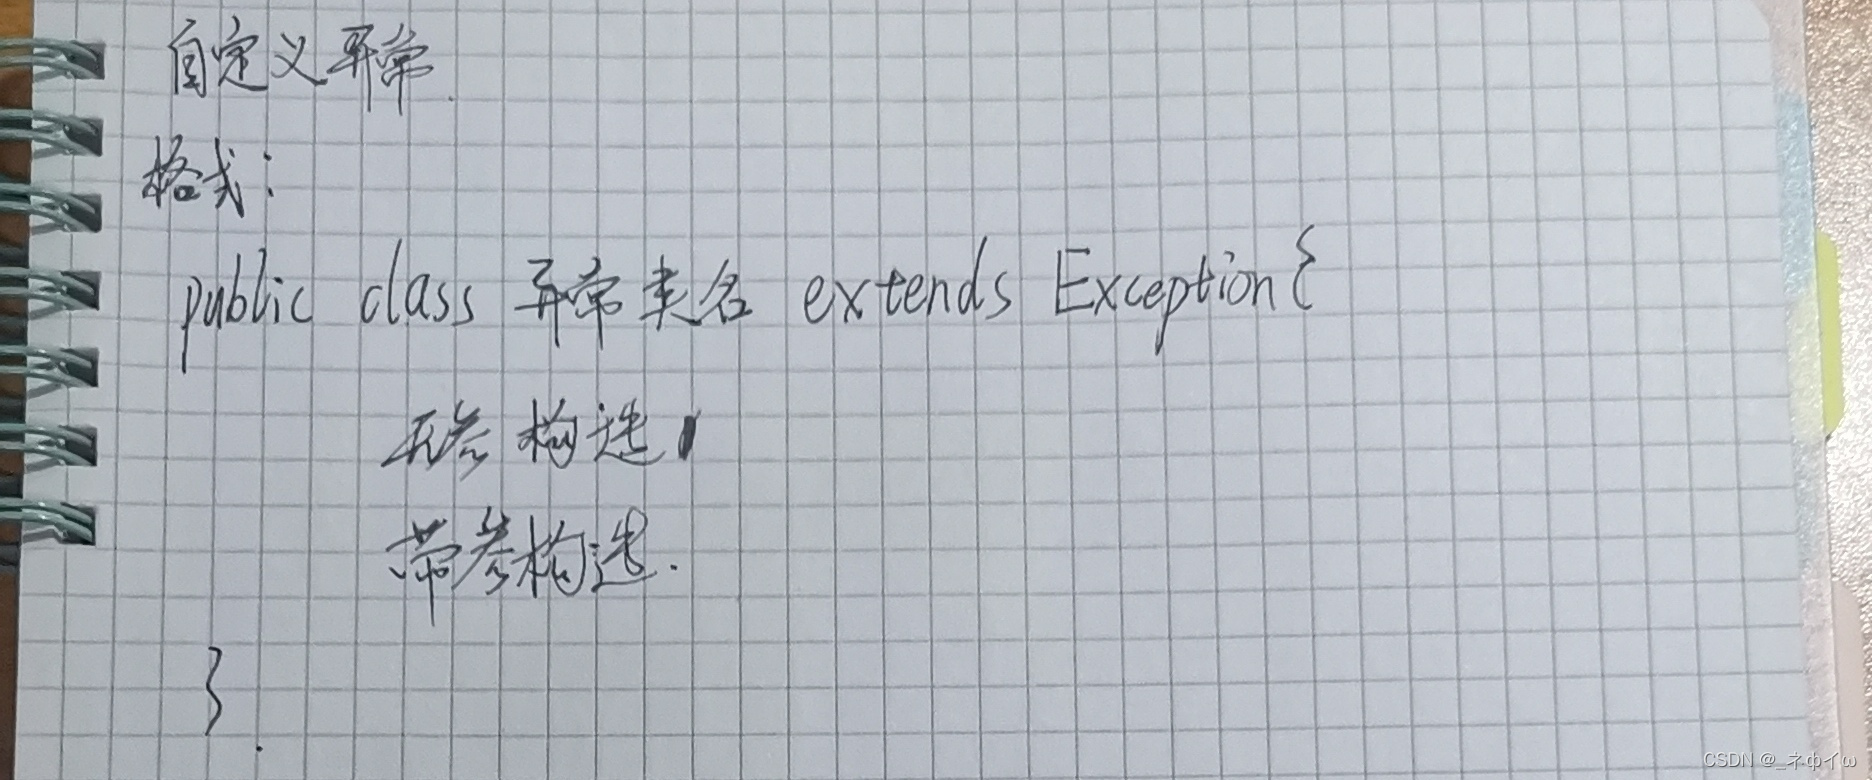 自定义异常.
格式:
public class 异常类名 extends Exception{
无参构造
带参构造.
}.
CSDN @_ネホイω